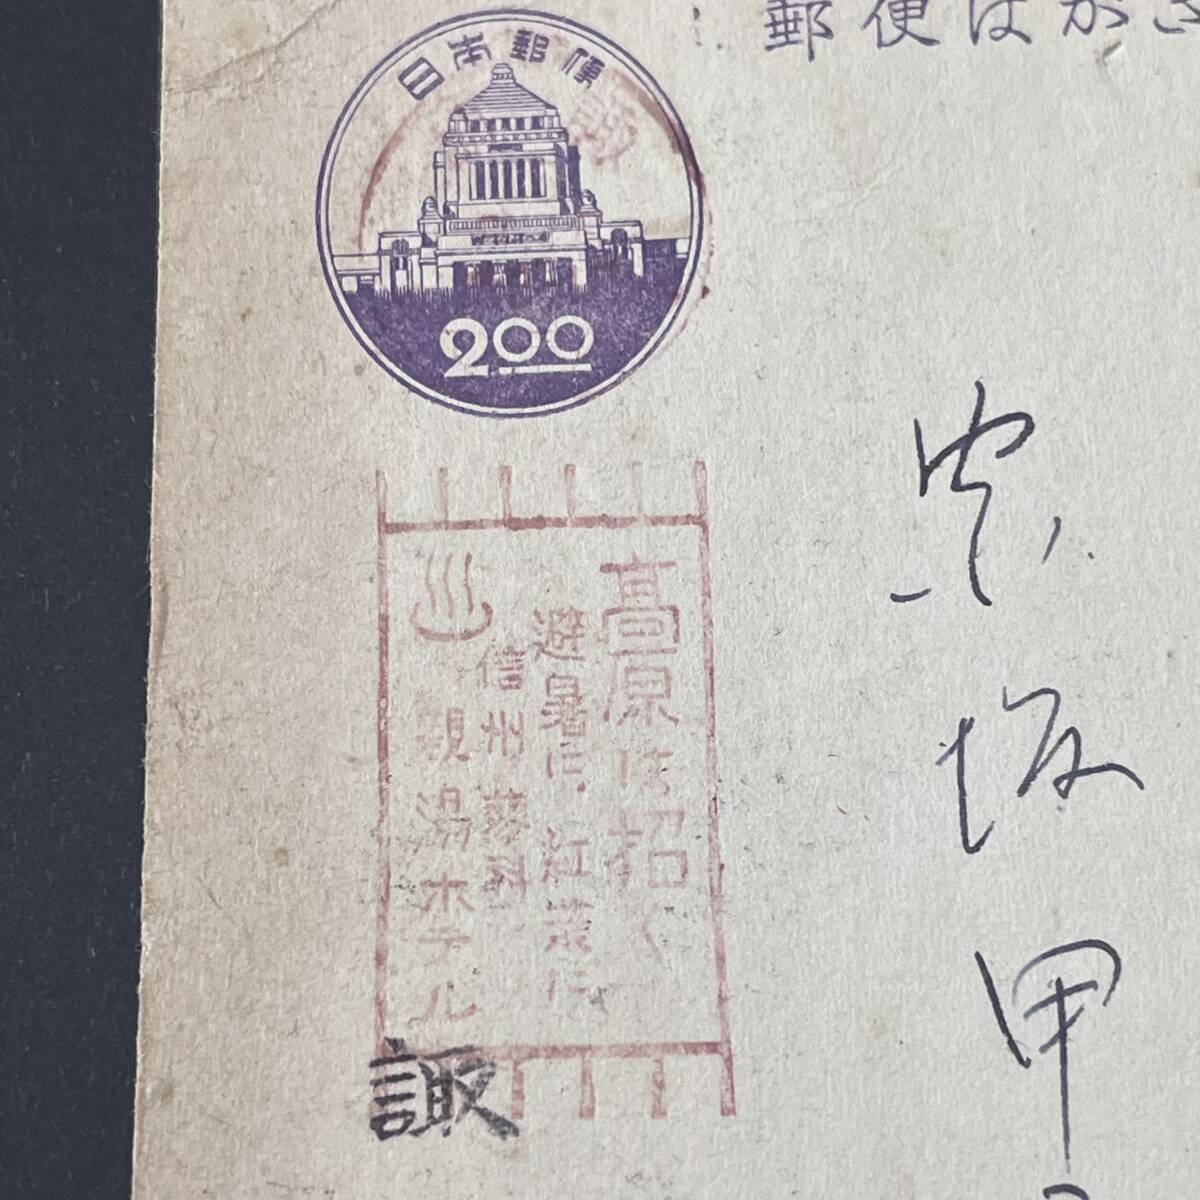 郵便はがき
日本郵便
2.00
高原は招く
避暑に、紅葉に
信州蓼科
♨ 親湯ホテル
諏